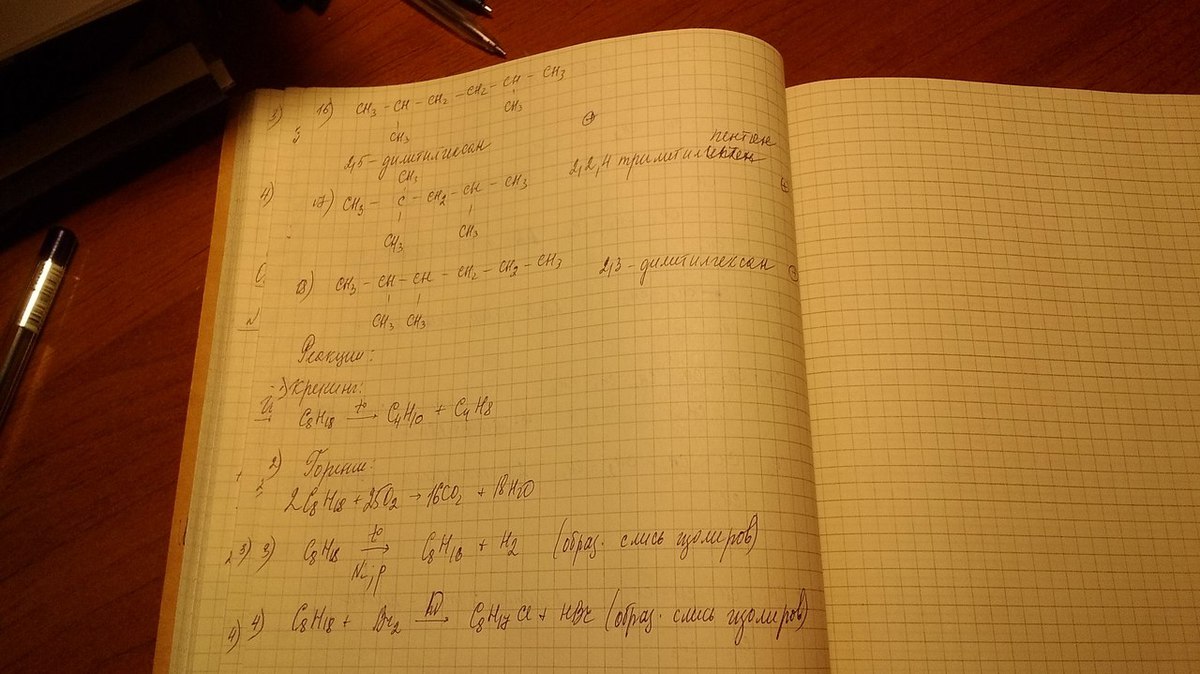 16) CH3 - CH - CH2 - CH2 - CH - CH3
CH3 CH3
2,5 - диметилгексан
CH3
17) CH3 - C - CH2 - CH - CH3
CH3 CH3
пентен
2,2,4 триметил
18) CH3 - CH - CH - CH2 - CH2 - CH3 2,3 - диметилгексан
CH3 CH3
Реакции:
1) Крекинг:
C8H18 t° → C4H10 + C4H8
2) Горение:
2C8H18 + 25O2 → 16CO2 + 18H2O
3) C8H18 t° → Ni, p C8H16 + H2 (образ. смесь изомеров)
4) C8H18 + Br2 → C8H17Cl + HBr (образ. смесь изомеров)